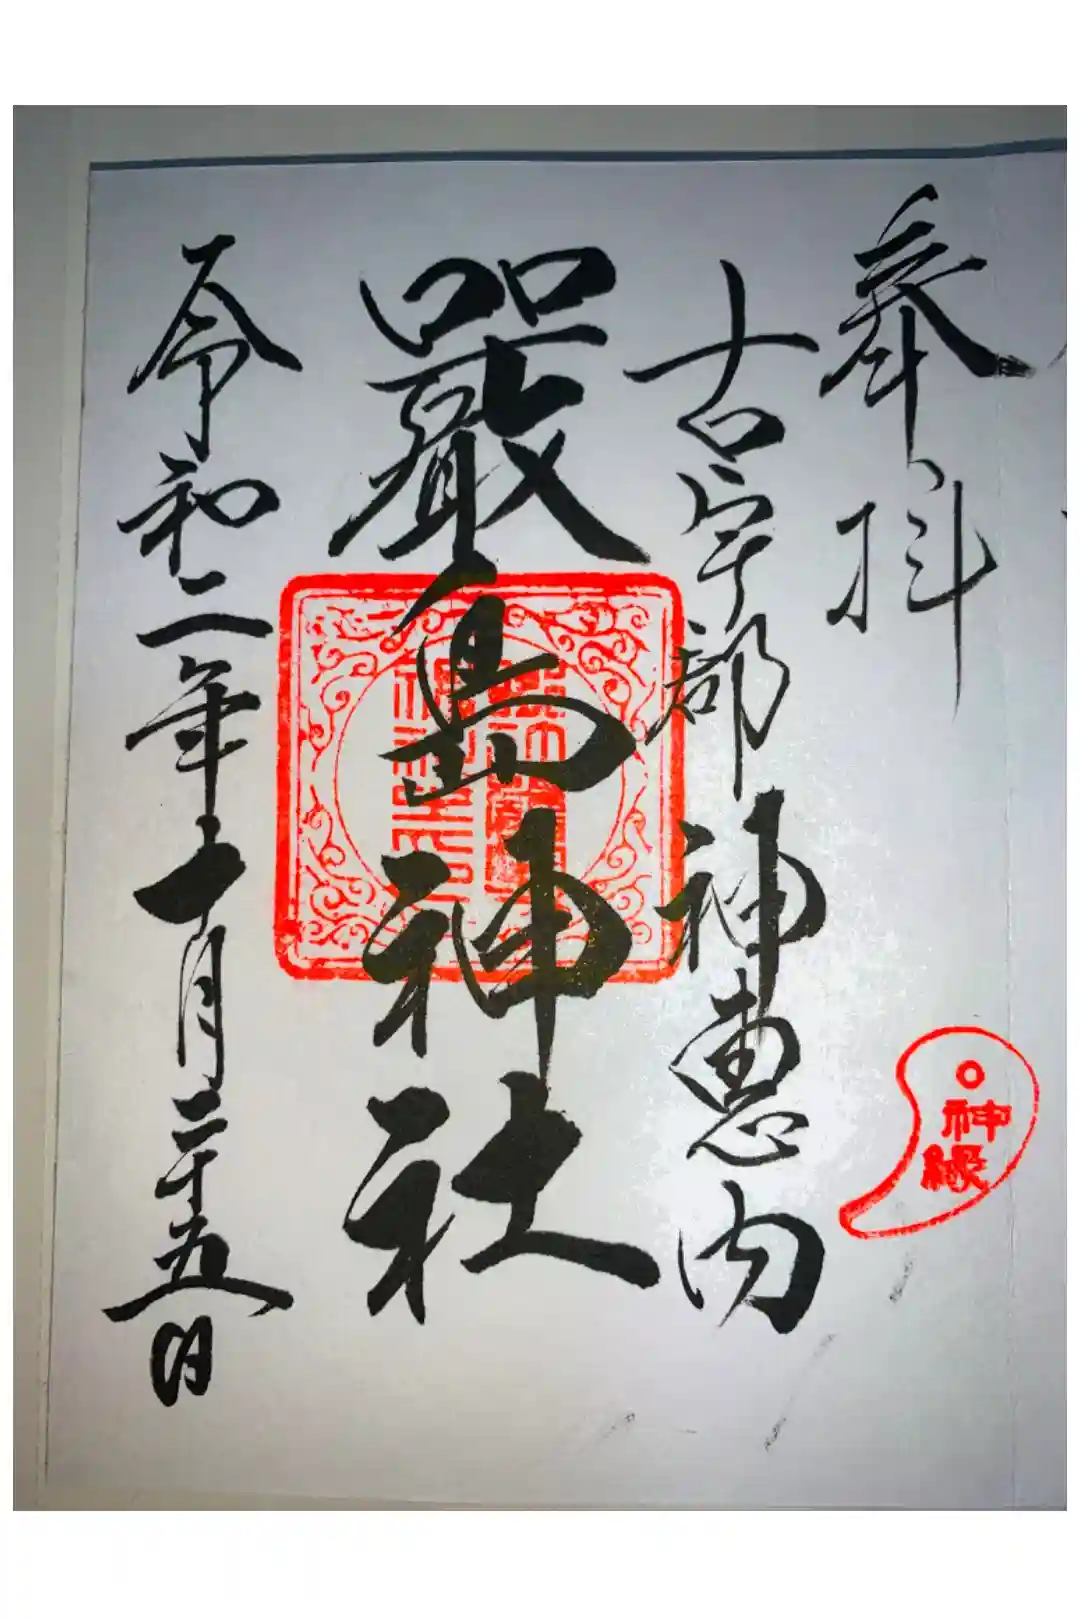 奉拝
古宇郡神恵内
神縁
嚴島神社
令和二年十月二十五日